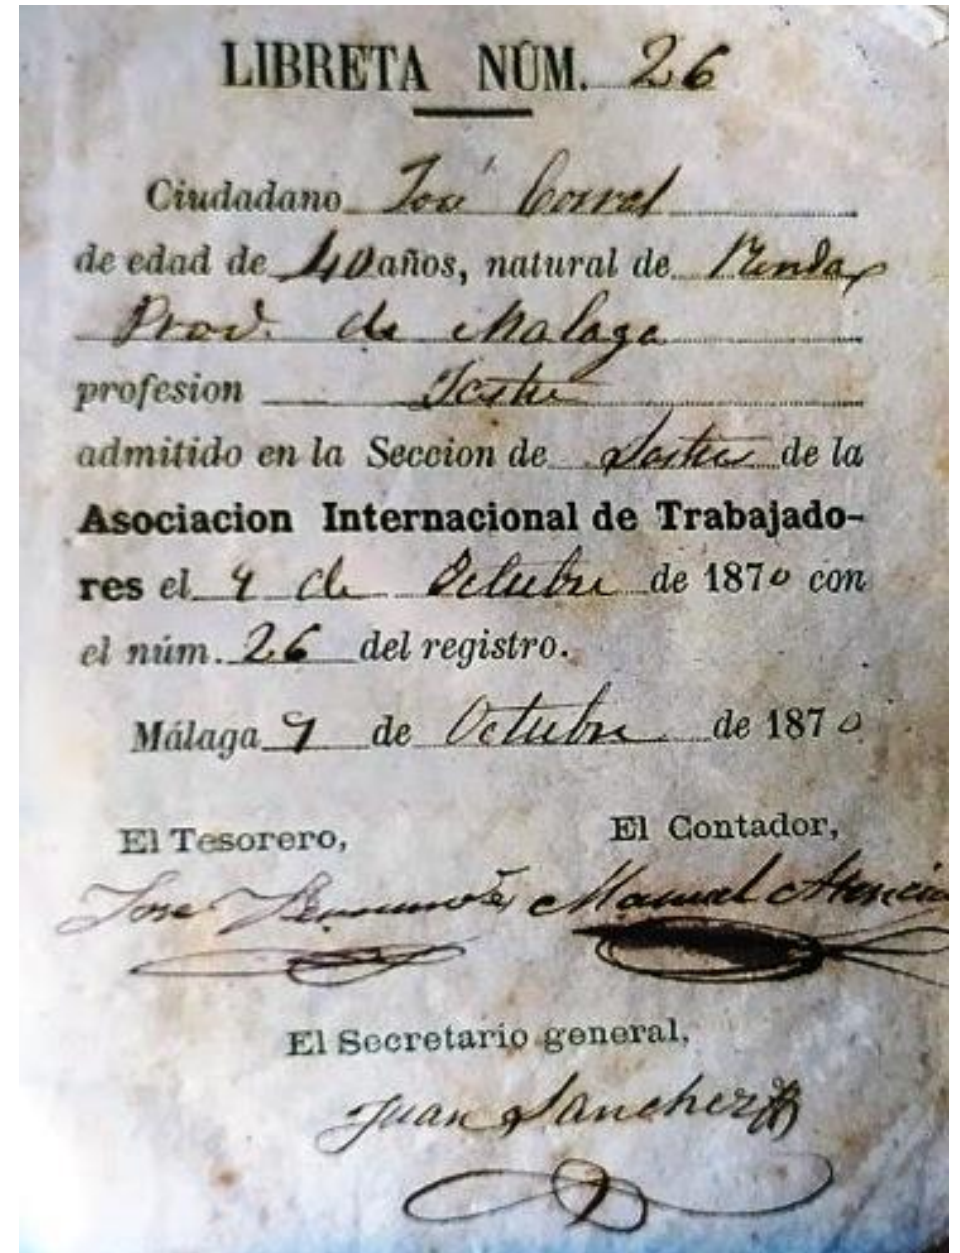 LIBRETA NÚM. 26
Ciudadano José Corral
de edad de 40 años, natural de Ronda,
Prov. de Malaga
profesion Sastre
admitido en la Seccion de Sastres de la
Asociacion Internacional de Trabajado-
res el 9 de Octubre de 1870 con
el núm. 26 del registro.
Málaga 9 de Octubre de 1870
El Tesorero, El Contador,
Jose Manuel Atencia
El Secretario general,
Juan Sanchez